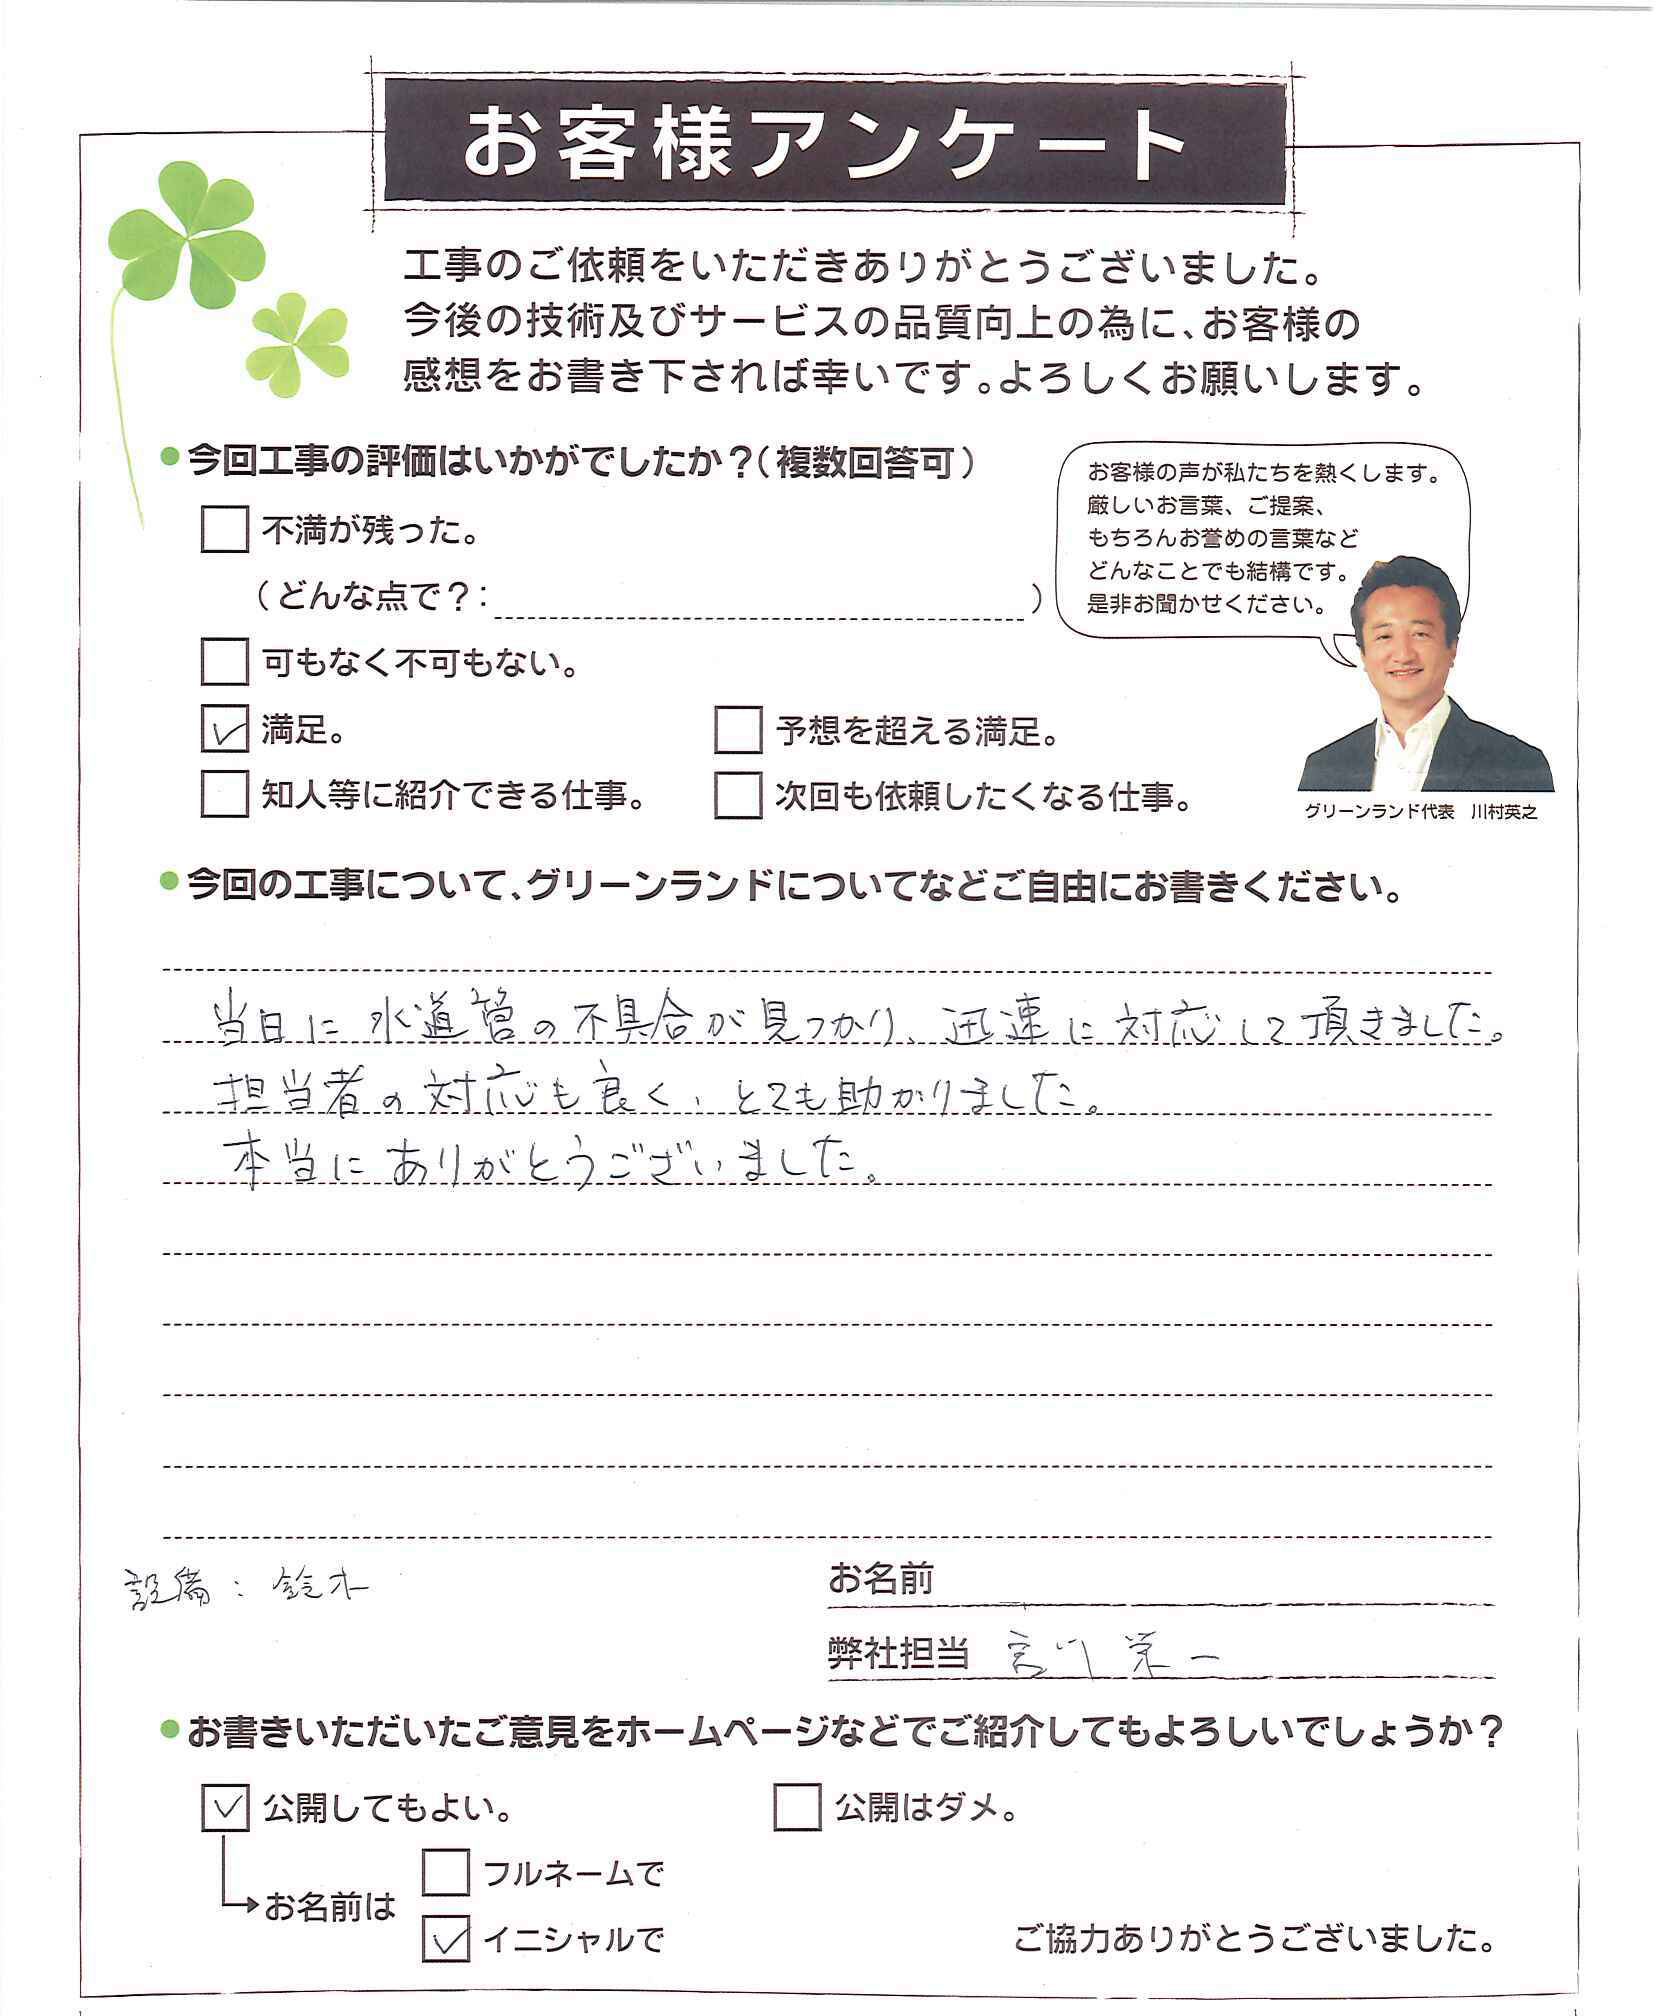 お客様アンケート
工事のご依頼をいただきありがとうございました。
今後の技術及びサービスの品質向上の為に、お客様の
感想をお書き下されば幸いです。よろしくお願いします。
●今回工事の評価はいかがでしたか？（複数回答可）
不満が残った。
（どんな点で？：　）
可もなく不可もない。
満足。　予想を超える満足。
知人等に紹介できる仕事。　次回も依頼したくなる仕事。
お客様の声が私たちを熱くします。
厳しいお言葉、ご提案、
もちろんお誉めの言葉など
どんなことでも結構です。
是非お聞かせください。
グリーンランド代表　川村英之
●今回の工事について、グリーンランドについてなどご自由にお書きください。
当日に水道管の不具合が見つかり、迅速に対応して頂きました。
担当者の対応も良く、とても助かりました。
本当にありがとうございました。
設備：鈴木
お名前
弊社担当　宮川 栄一
●お書きいただいたご意見をホームページなどでご紹介してもよろしいでしょうか？
公開してもよい。　公開はダメ。
お名前は
フルネームで
イニシャルで
ご協力ありがとうございました。